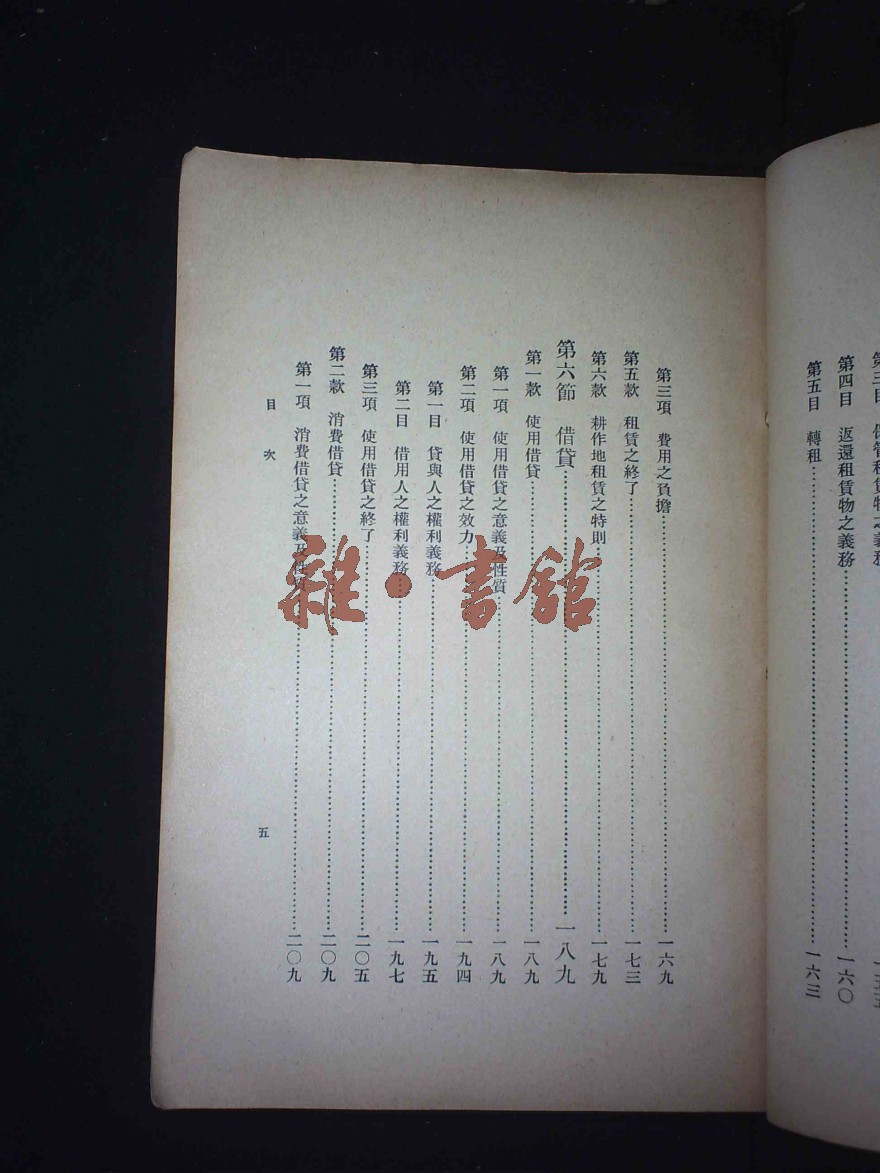 第四目　返還租賃物之義務……一六〇
第五目　轉租……一六三
第三項　費用之負擔……一六九
第五款　租賃之終了……一七三
第六款　耕作地租賃之特則……一七九
第六節　借貸……一八九
第一款　使用借貸……一八九
第一項　使用借貸之意義及性質……一八九
第二項　使用借貸之效力……一九四
第一目　貸與人之權利義務……一九五
第二目　借用人之權利義務……一九七
第三項　使用借貸之終了……二〇五
第二款　消費借貸……二〇九
第一項　消費借貸之意義及性質……二〇九
目　次
五
雜·書館